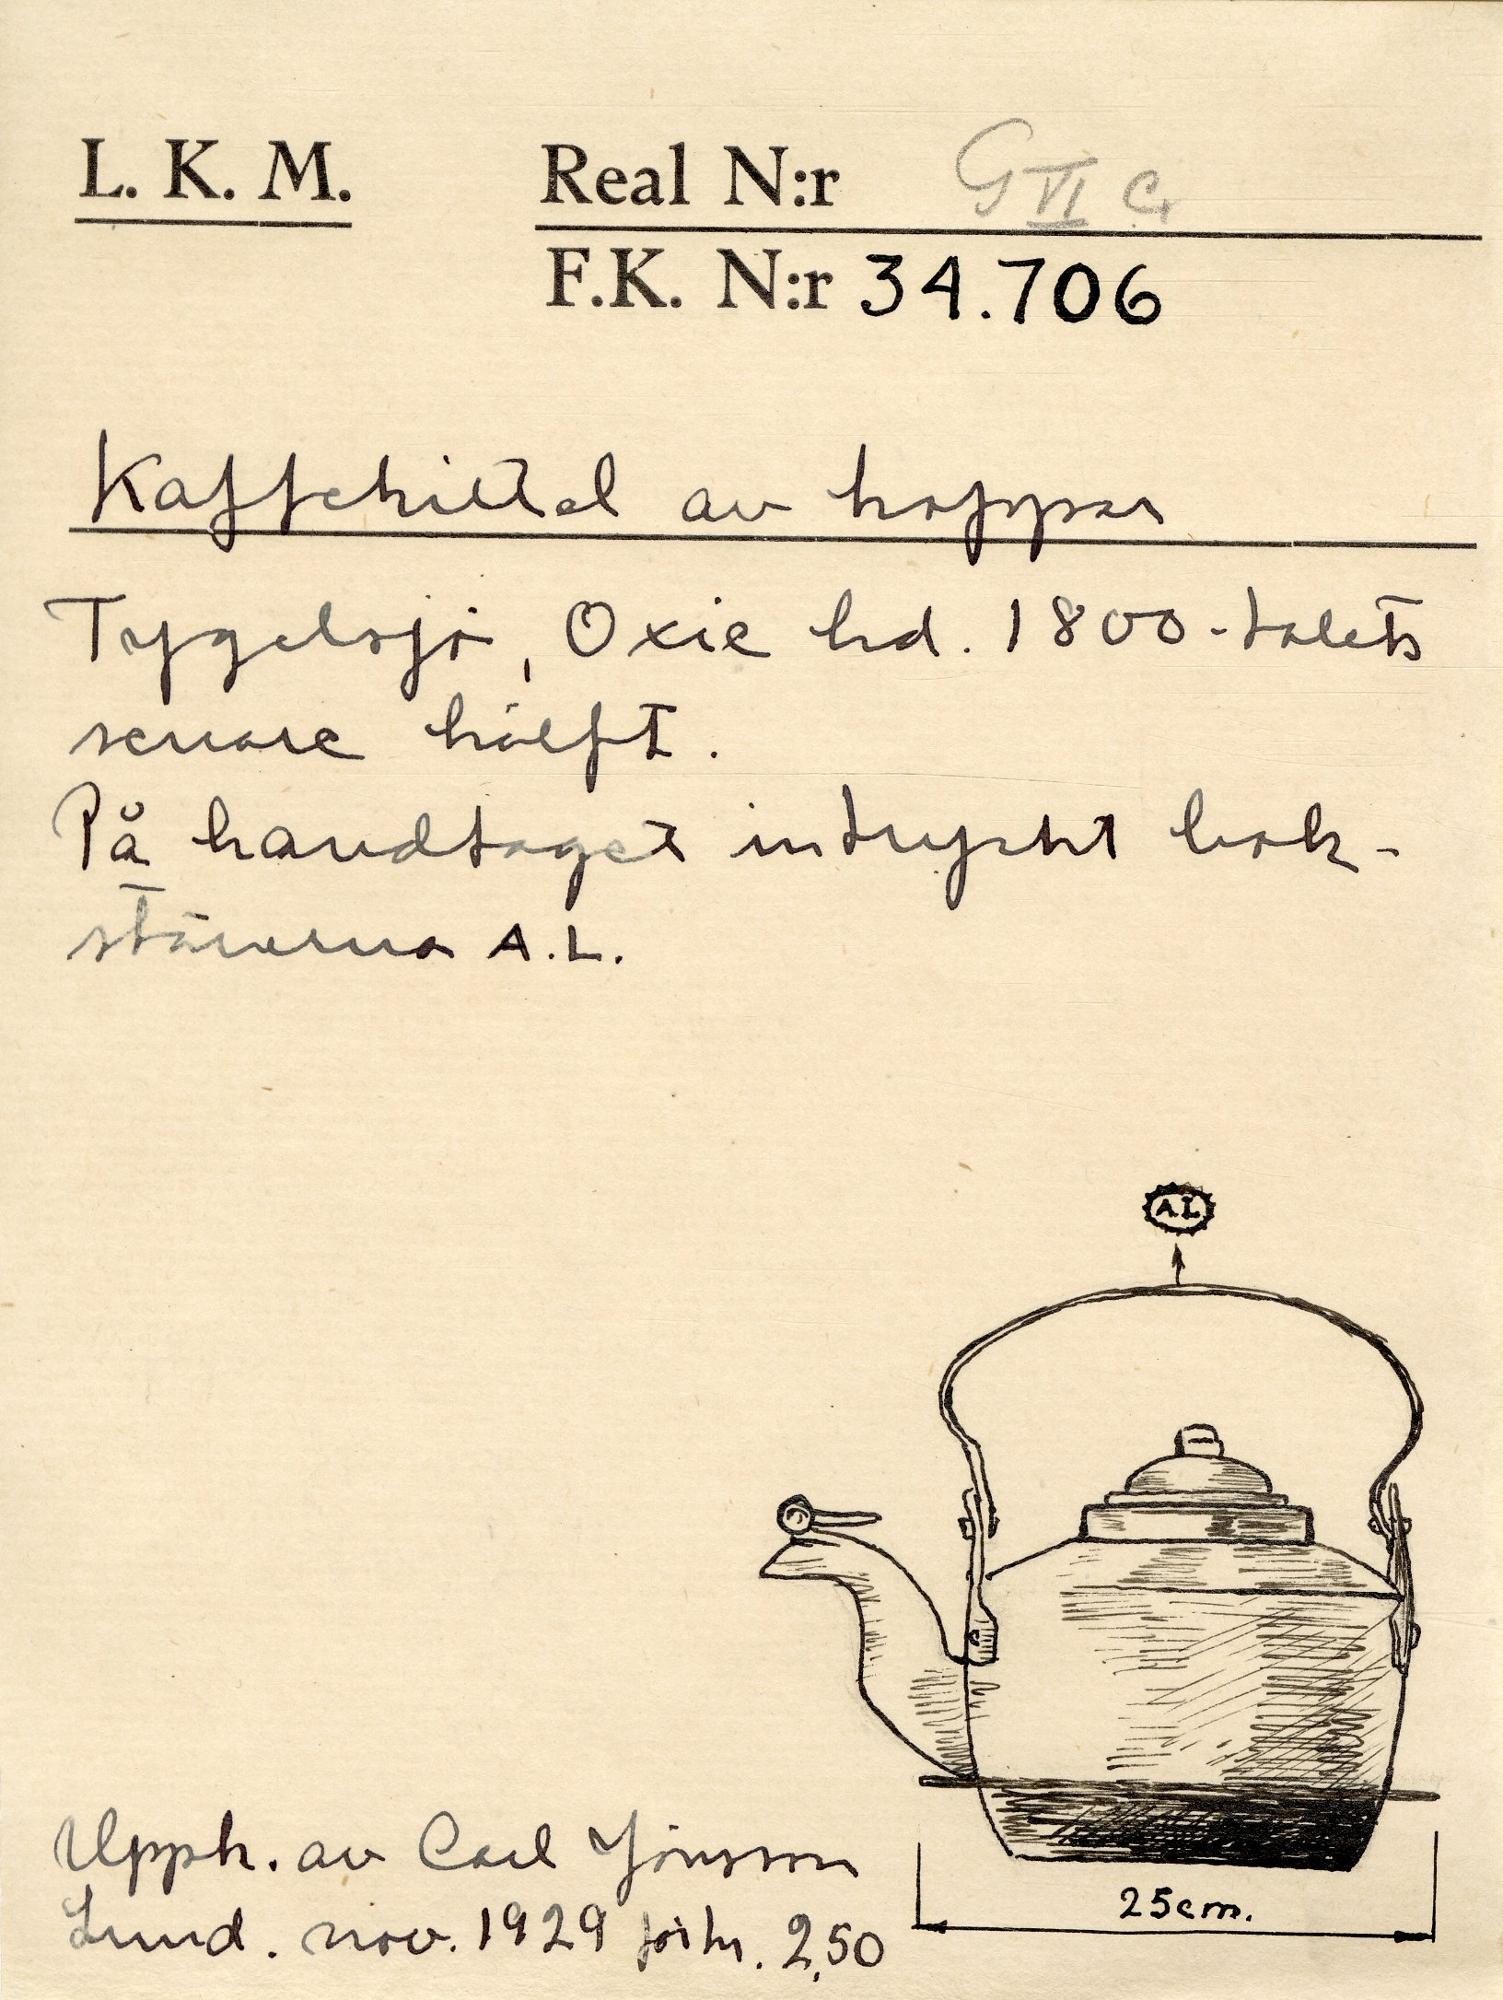 L. K. M.
Real N:r G VI c
F.K. N:r 34.706
Kaffekittel av koppar
Tygelsjö, Oxie hd. 1800-talets
senare hälft.
På handtaget intryckt bok-
stäverna A.L.
A.L.
25cm.
Upph. av Carl Jönsson
Lund. nov. 1929 för kr. 2,50